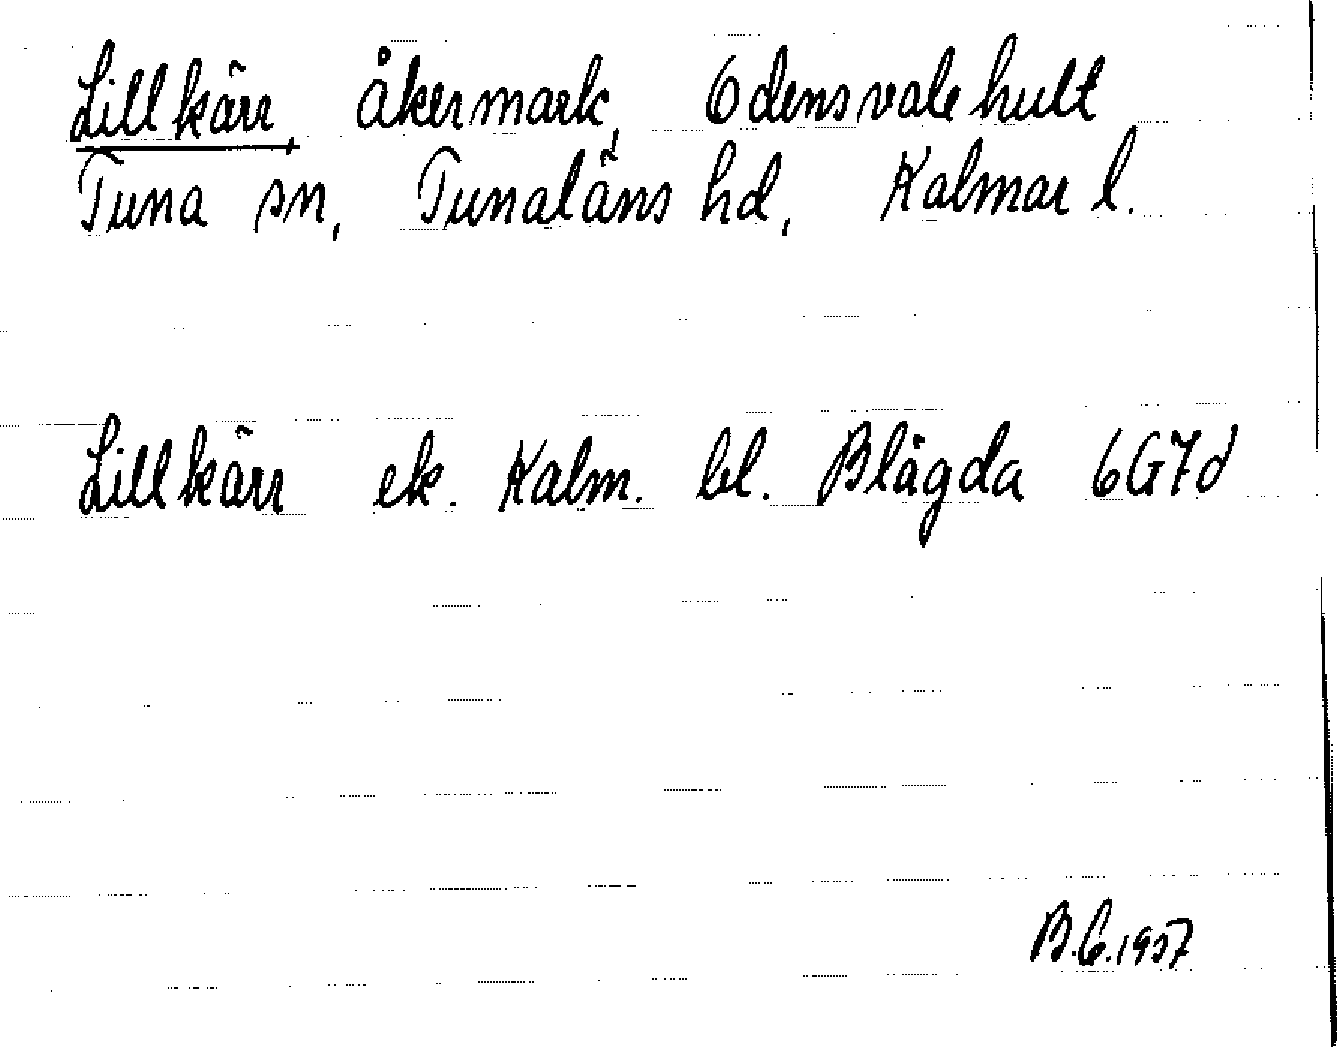 Lillkärr, åkermark, Odensvalehult
Tuna sn, Tunaläns hd, Kalmar l.
Lillkärr ek. Kalm. bl. Blågda 6G7d
B.C.1957